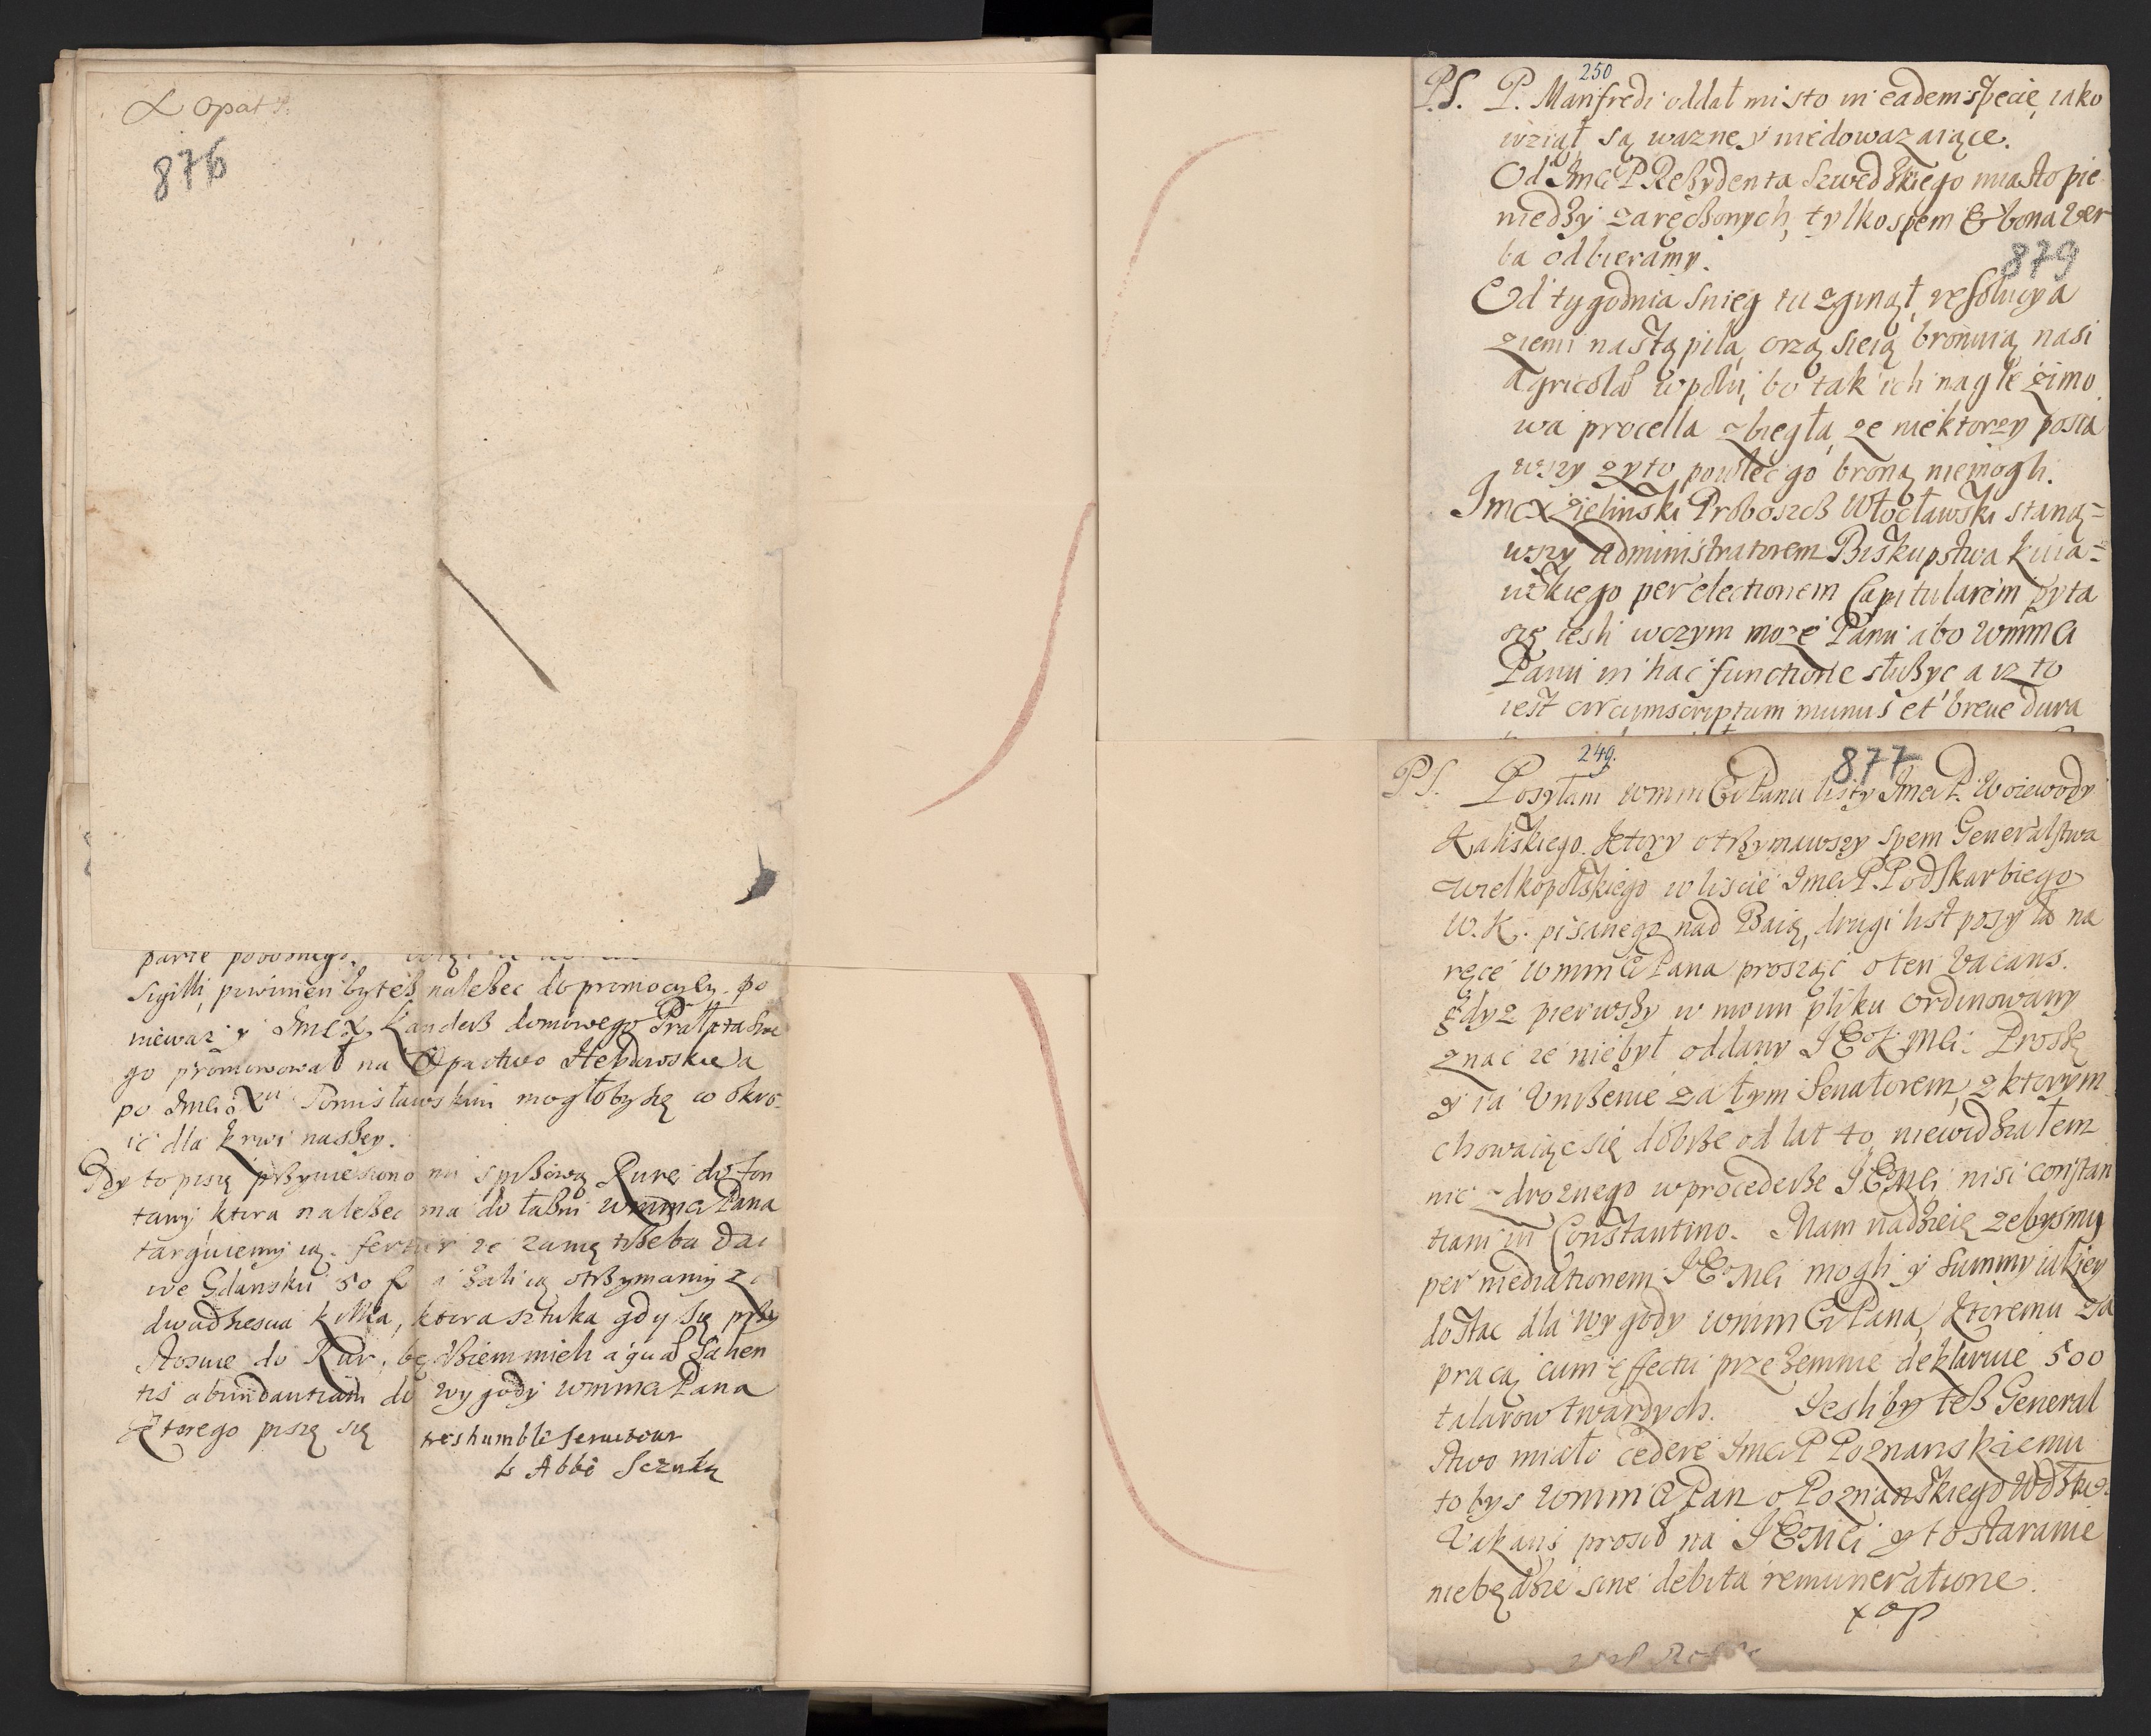 X Opat P.
876
Sigilli, powinien byteß naleßec do promocyey. po
niewaz y Jmcx Kanderß domowego Prałata Swe
go promowował na Opactwo Hebdowskie a
po Jmci Xu Tomisławskim mogłoby się co okro-
ic dla krwi naßey.
Gdy to piszę prßyniesiono mi spißową Rurę do fon
tany ktora naleßec ma do łaßni Wmmci Pana
targuiemy ią. fertur ze zanię trßeba dac
we Gdansku 50 f a ßali ią otrßymamy za
dwadßiescia kilka, ktora sztuka gdy się prßy
stosuie do Rur, będßiem mieli aquas salien
tis abundantiam do wygody Wmmci Pana
Ktorego piszę się
tres humble serviteur
L Abbé Sczuka
250
P.S. P. Manfredi oddał misto in eadem specie, iako
wziął są wazne y niedowazaiące.
Od Jmci P Reßydenta Szwedßkiego miasto pie
niedßy zaręcßonych, tylko spem & bona ver
ba odbieramy.
879
Od tygodnia snieg tu zginął, resolucya
ziemi nastąpiła, orzą sieią bronuią nasi
agricolæ w polu, bo tak ich nagle zimo
wa procella zbiegła, ze niektorzy posia
wszy zyto powlec go broną niemogli.
Jmcx Zielinski Proboszcß Włocławski staną=
wszy administratorem Biskupstwa kuia=
wskiego per electionem Capitularem pyta
się iesli wczym moze Panu abo Wmmci
Panu in hac functione słußyc a iz to
iest circumscriptum munus et breve dura
249.
877
P.S. Posyłam Wmmci Panu listy Jmci P. Woiewody
Kaliskiego. Ktory otrßymawszy spem Generalstwa
Wielkopolskiego w liscie Jmci P. Podskarbiego
W.K. pisanego nad Baią, drugi list posyła na
ręce Wmmci Pana prosząc o ten vacans.
gdyz pierwßy w moim pliku ordinowany
znac ze niebył oddany JEoJMci. Proßę
y ia Unißenie za tym Senatorem, z ktorym
chowaiąc się dobrße od lat 40 niewidßiałem
nic zdroznego w procederße JEMci nisi constan
tiam in Constantino. Mam nadßieię zebysmy
per mediationem JEoMci mogli y summy iakiey
dostac dla wygody Wmmci Pana, Ktoremu za
pracą cum effectu przeßemnie deklaruie 500
talarow twardych. Iesliby teß General
stwo miało cedere Jmci P Poznanskiemu
tobys Wmmci Pan o Poznanskiego Wdstwa
Vakans prosił na JEMci y to staranie
niebędßie sine debita remuneratione.
x op